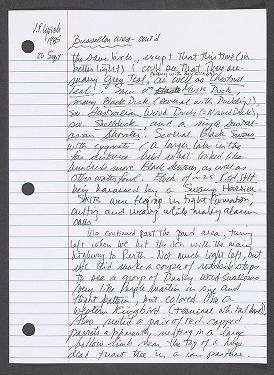 J.F. 
1985
26 Sept
Busselton area - cont'd
the same birds, except that this time (in
better light) I could see that there are
many Grey Teal, as well as Chestnut
Teal. I saw a Musk Duck
many Black Duck (several with ducklings),
sev. Australian Wood Duck (= Maned Duck),
sev. Shelduck, and a single Austral-
asian Shoveler. Several Black Swans
with cygnets. (A larger lake in the
far distance held what looked like
hundreds more Black Swans, as well as
other waterfowl. About 25 Stilt
being harassed by a Swamp Harrier.
Stilts were flying in tight formation,
cutting and weaving while making alarm
calls.
We continued past the pond area, turn
left when we hit the with the main
highway to Perth. Not much light left, but
we did make a couple of roadside stops
to see a group of Dusky Woodswallows
(very like Purple Martin in size and
flight pattern, but colored like a
Western Kingbird
Also noted a pair of red-capped
parrots apparently nesting in a large
hollow limb near the top of a huge
dead trunk tree in a cow pasture.